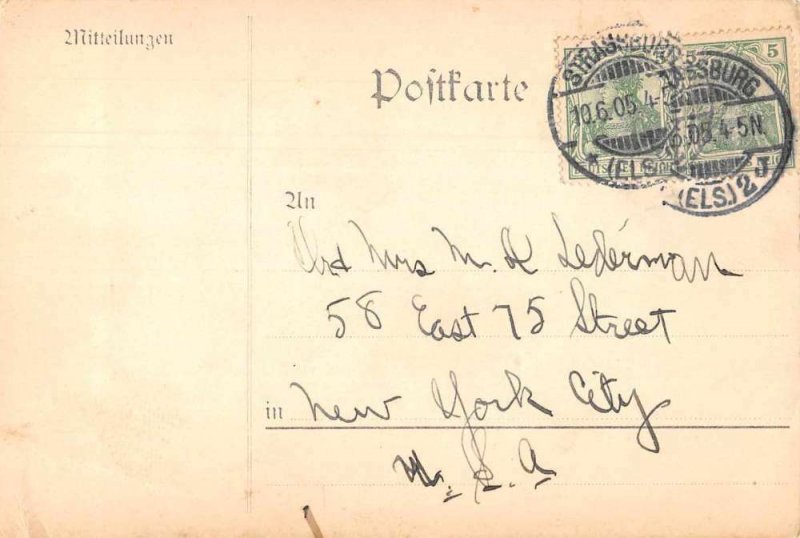 Mitteilungen
Postkarte
5
STRASSBURG
10.6.05.4-
(ELS.
STRASSBURG
.05.4-5N.
(ELS.) 2 J
An
Mrs M. L Lederman
58 East 75 Street
in New York City
U.S.A